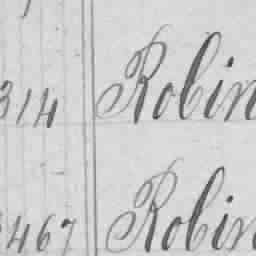 314 Robin
467 Robin